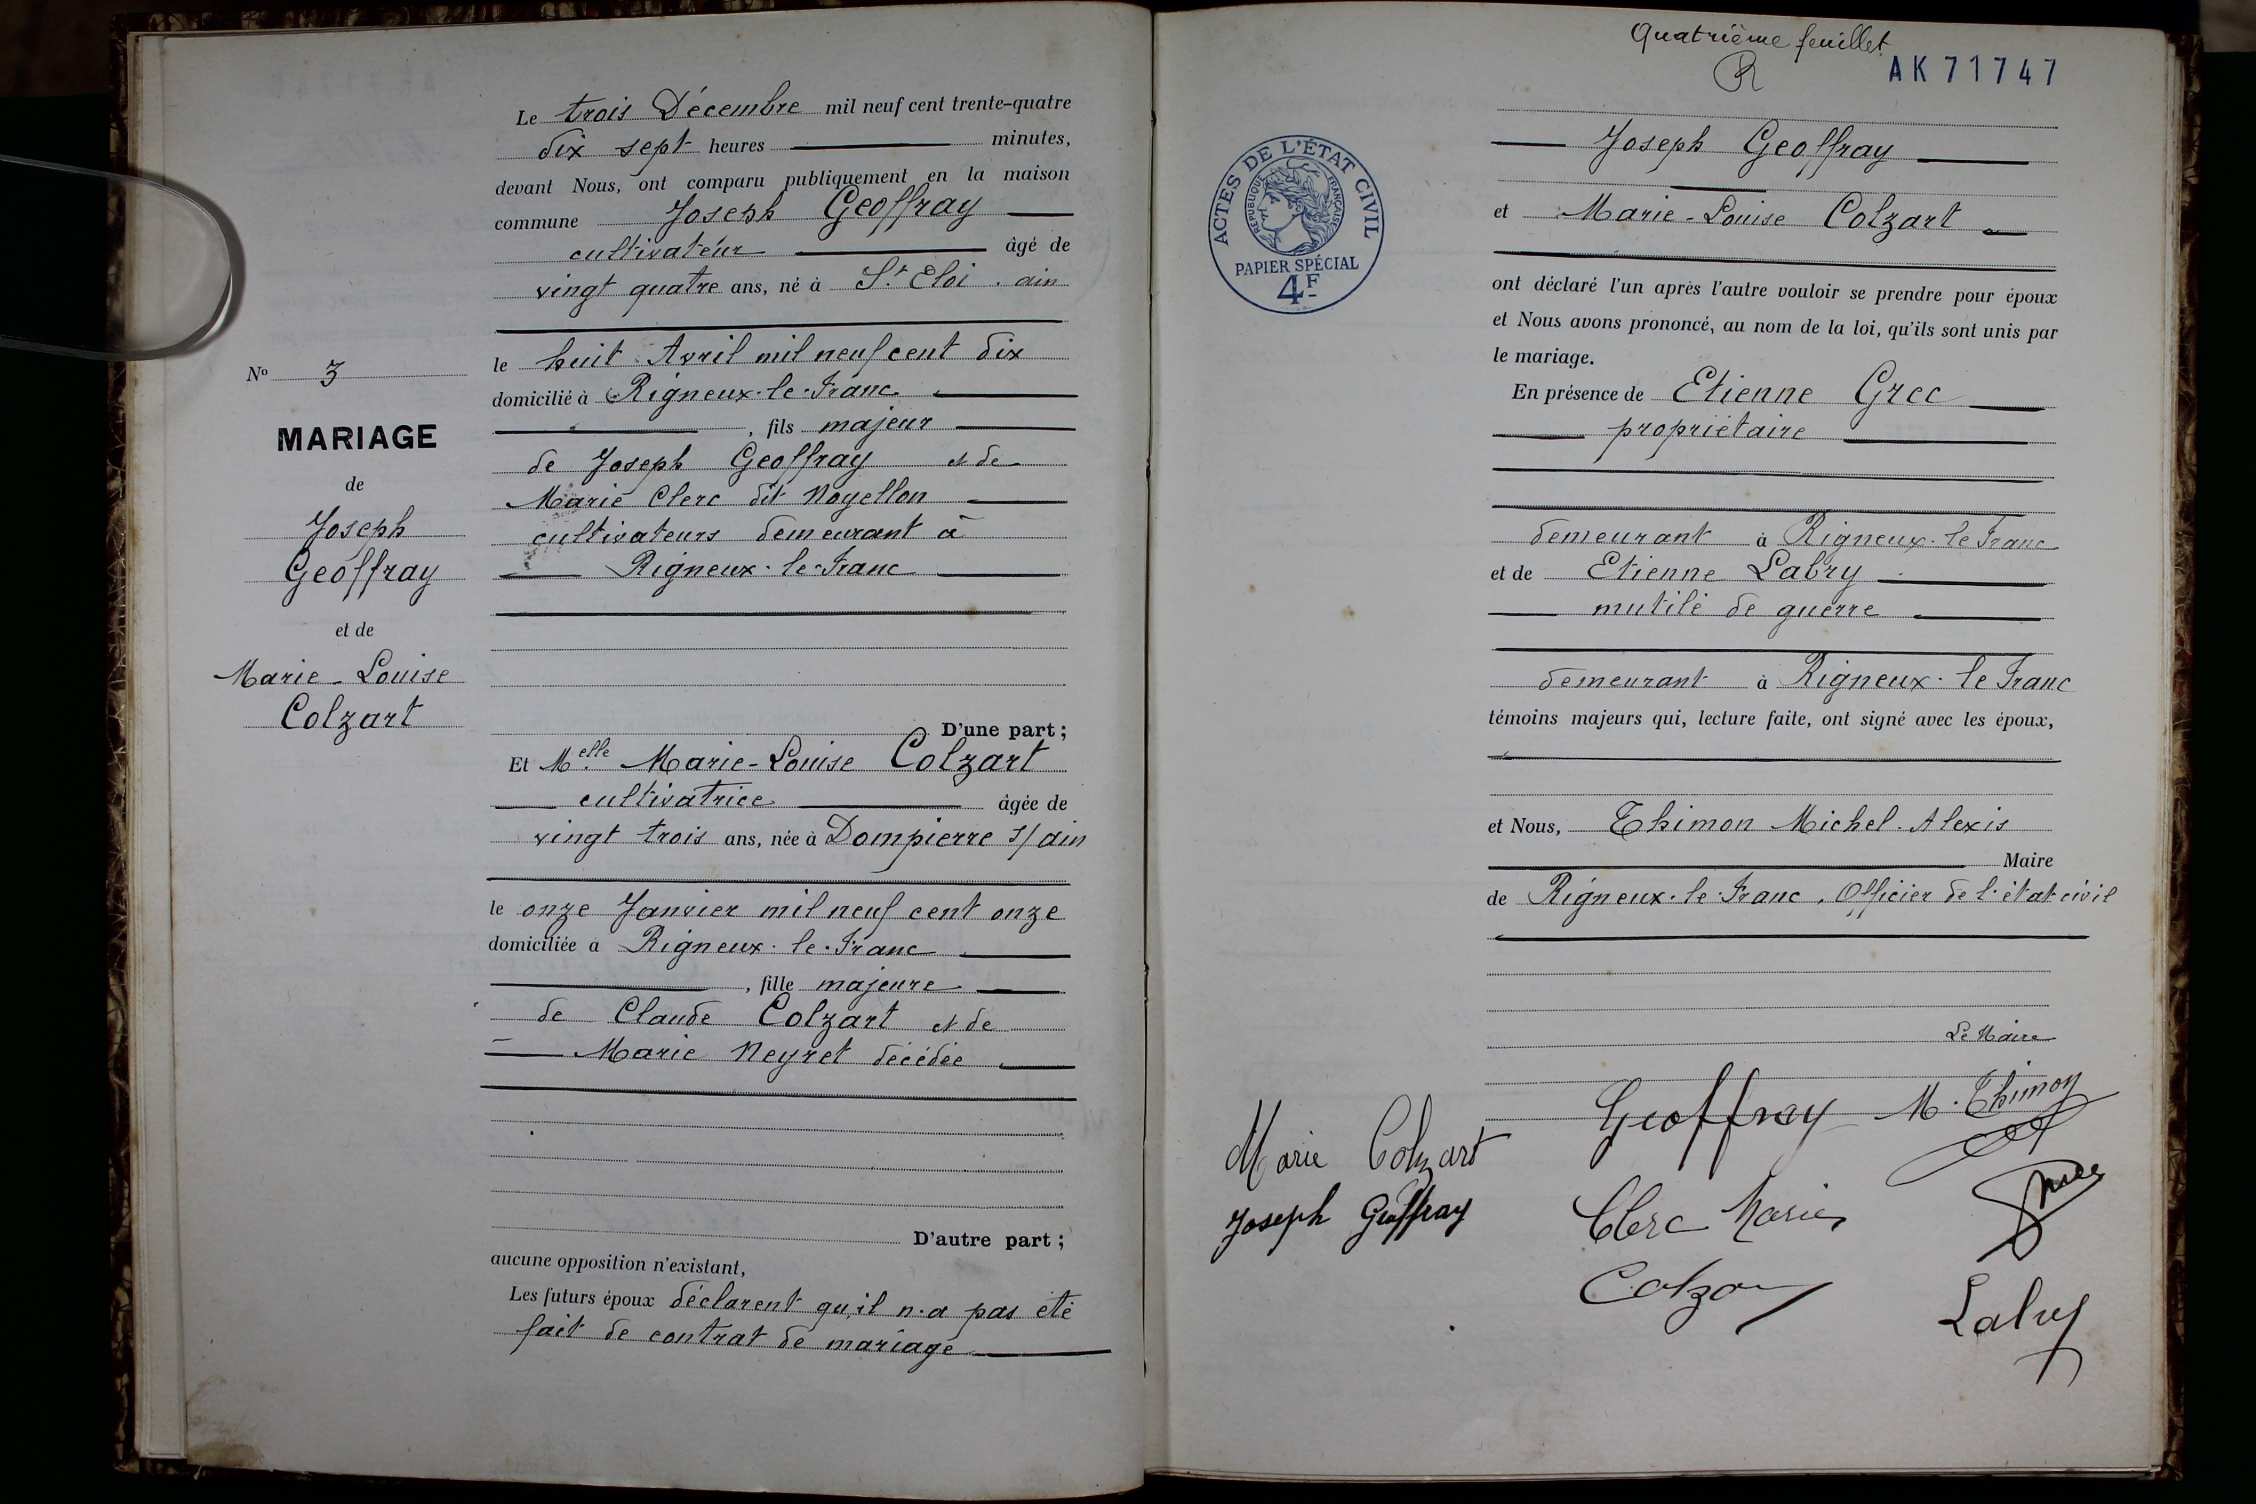 N° 3
MARIAGE
de
Joseph
Geoffray
et de
Marie-Louise
Colzart
Le trois Décembre mil neuf cent trente-quatre
dix sept heures minutes,
devant Nous, ont comparu publiquement en la maison
commune Joseph Geoffray
cultivateur âgé de
vingt quatre ans, né à St Eloi . ain
le huit Avril mil neuf cent dix
domicilié à Rigneux-le-Franc
, fils majeur
de Joseph Geoffray et de
Marie Clerc dit Noyellon
cultivateurs demeurant à
Rigneux-le-Franc
D'une part ;
Et Melle Marie-Louise Colzart
cultivatrice âgée de
vingt trois ans, née à Dompierre s/ ain
le onze Janvier mil neuf cent onze
domiciliée à Rigneux-le-Franc
, fille majeure
de Claude Colzart et de
Marie Neyret décédée
D'autre part ;
aucune opposition n'existant,
Les futurs époux déclarent qu'il n'a pas été
fait de contrat de mariage
Quatrième feuillet
R
AK 71747
ACTES DE L'ÉTAT CIVIL
RÉPUBLIQUE FRANÇAISE
PAPIER SPÉCIAL
4F
Joseph Geoffray
et Marie-Louise Colzart
ont déclaré l'un après l'autre vouloir se prendre pour époux
et Nous avons prononcé, au nom de la loi, qu'ils sont unis par
le mariage.
En présence de Etienne Grec
propriétaire
demeurant à Rigneux-le Franc
et de Etienne Labry
mutilé de guerre
demeurant à Rigneux-le Franc
témoins majeurs qui, lecture faite, ont signé avec les époux,
et Nous, Thimon Michel-Alexis
Maire
de Rigneux-le-Franc, Officier de l'état civil
Le Maire
Geoffray M. Thimon
Marie Colzart
Joseph Geoffray
Clerc Marie
Colzart
Labry